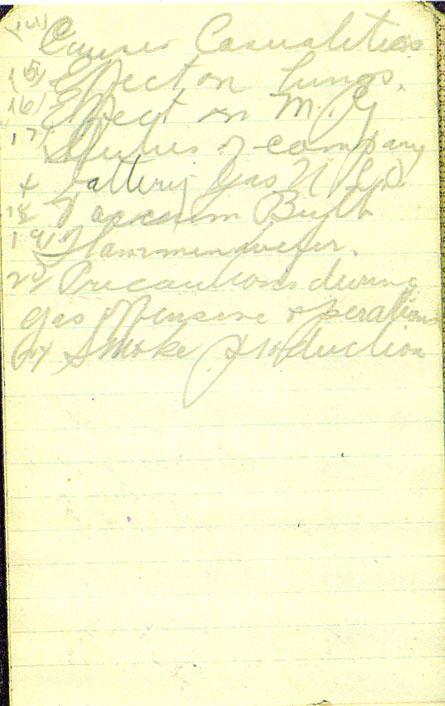 (14) Causes Casualities
(15) Effect on Lungs.
16) Effect on M. G
17) Duties of company
+ battery gas N C O
18 Vacuum Bulb
19) Flammenwerfer.
20) Precautions during
gas offensive operations
Smoke Production